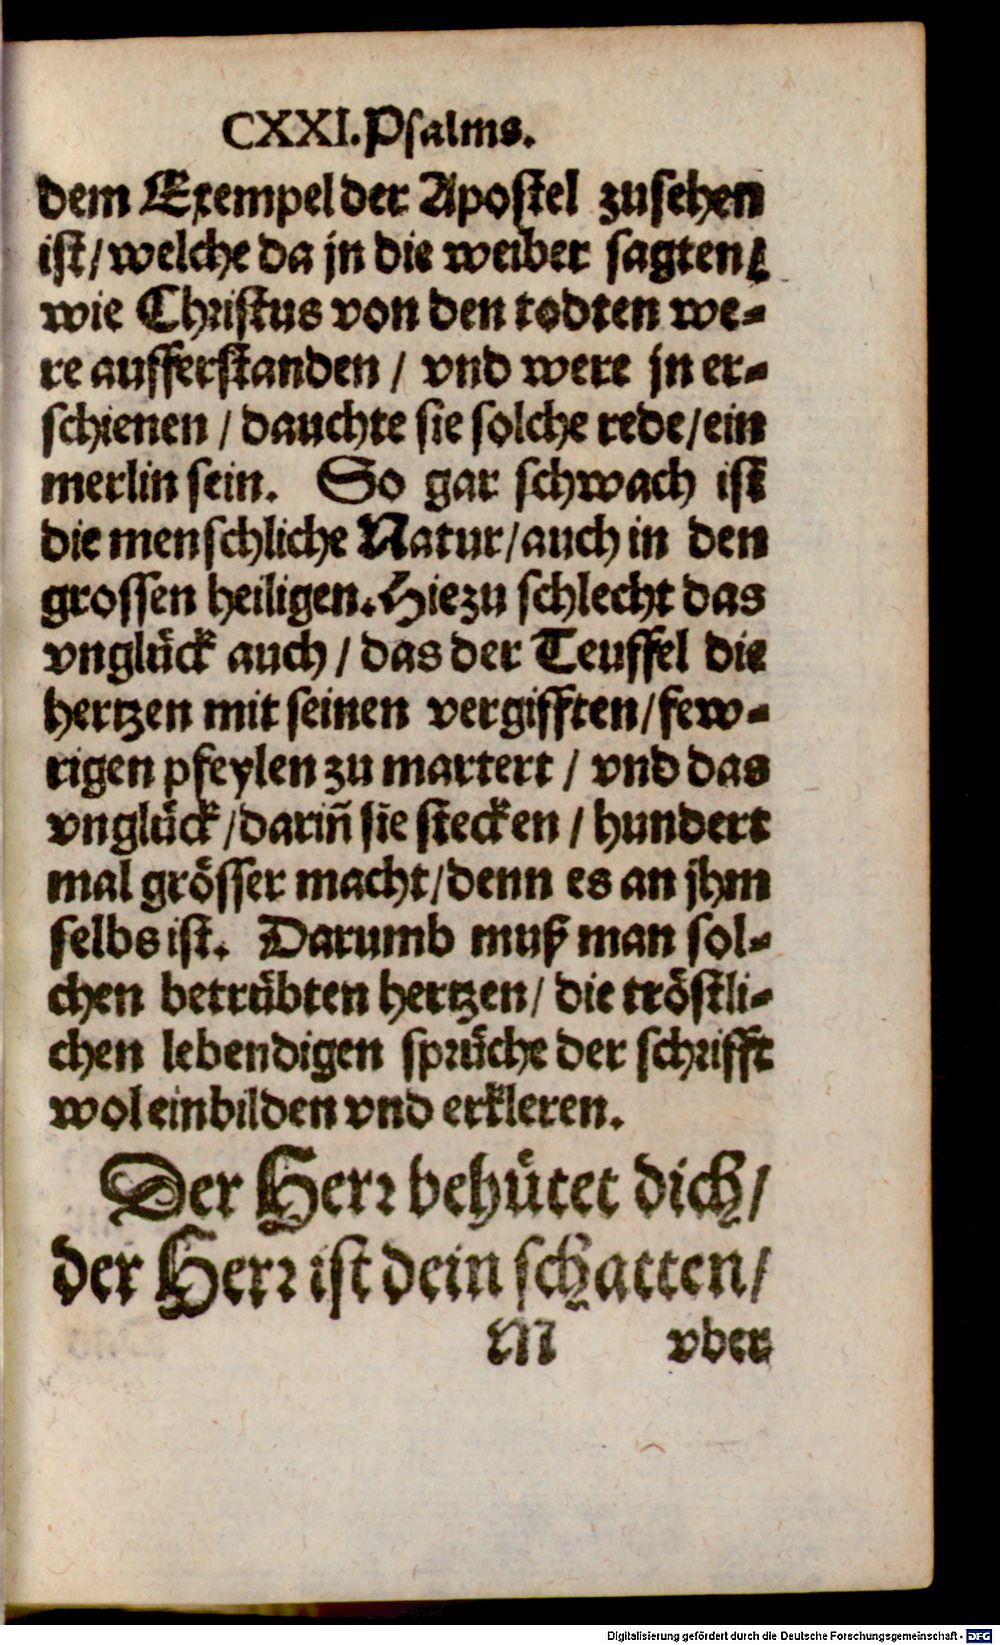 CXXI. Psalms.
dem Exempel der Apostel zusehen
ist / welche da jn die weiber sagten /
wie Christus von den todten we-
re aufferstanden / vnd were jn er-
schienen / dauchte sie solche rede / ein
merlin sein. So gar schwach ist
die menschliche Natur / auch in den
grossen heiligen. Hiezu schlecht das
vnglück auch / das der Teuffel die
hertzen mit seinen vergifften / few-
rigen pfeylen zu martert / vnd das
vnglück / dariñ sie stecken / hundert
mal grösser macht / denn es an jhm
selbs ist. Darumb muß man sol-
chen betrübten hertzen / die tröstli-
chen lebendigen sprüche der schrifft
wol einbilden vnd erkleren.
Der Herr behütet dich /
der Herr ist dein schatten /
M vber
Digitalisierung gefördert durch die Deutsche Forschungsgemeinschaft - DFG